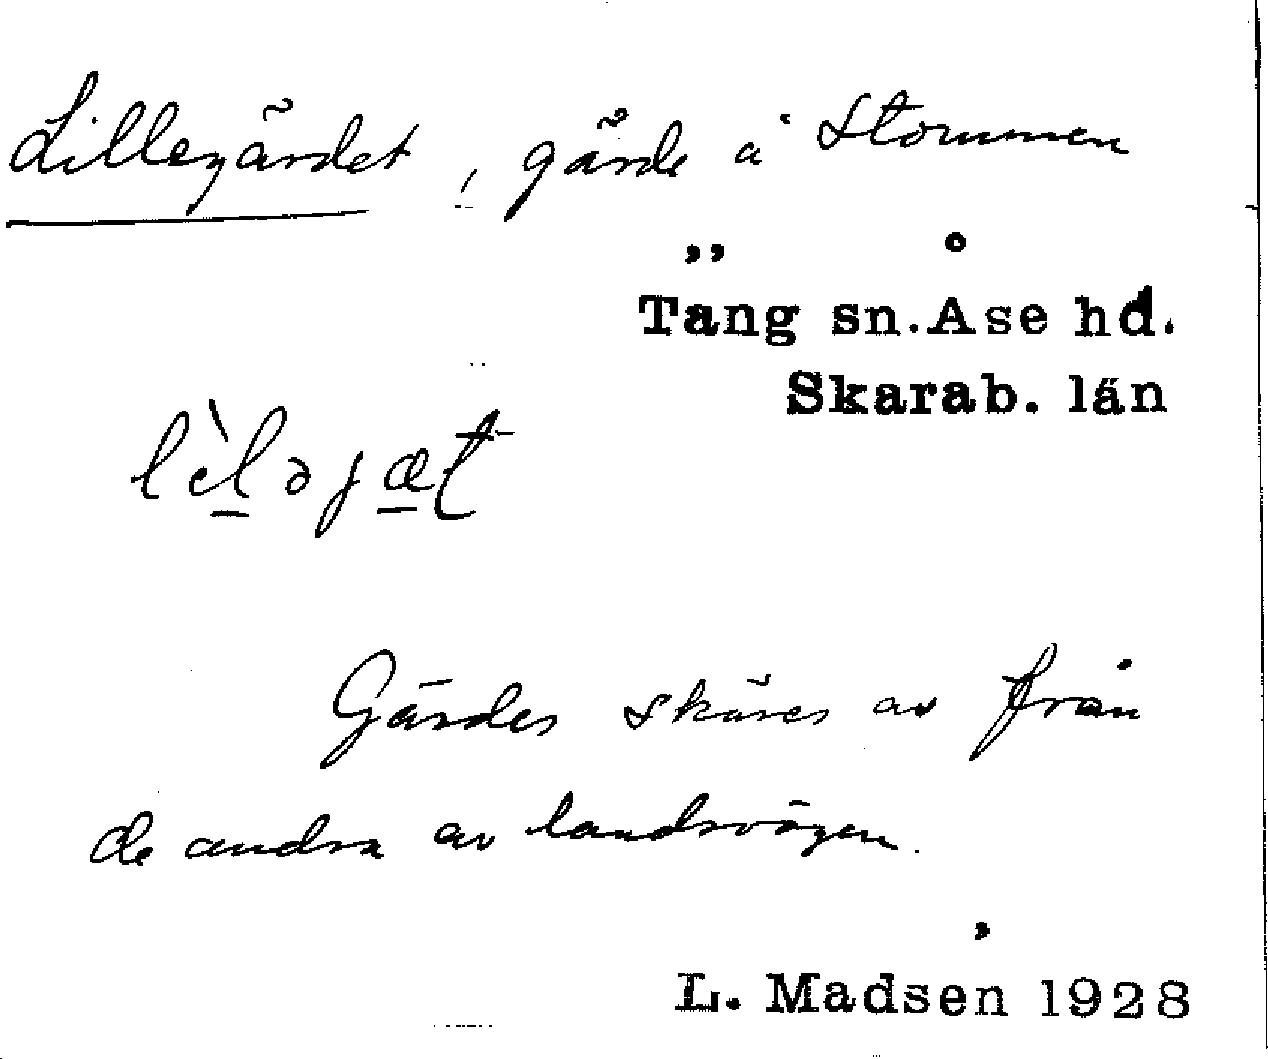 Lillegärdet, gärde å Stommen
Täng sn. Åse hd.
Skarab. län
lèləjæt
Gärdet skäres av från
de andra av landsvägen.
L. Madsen 1928